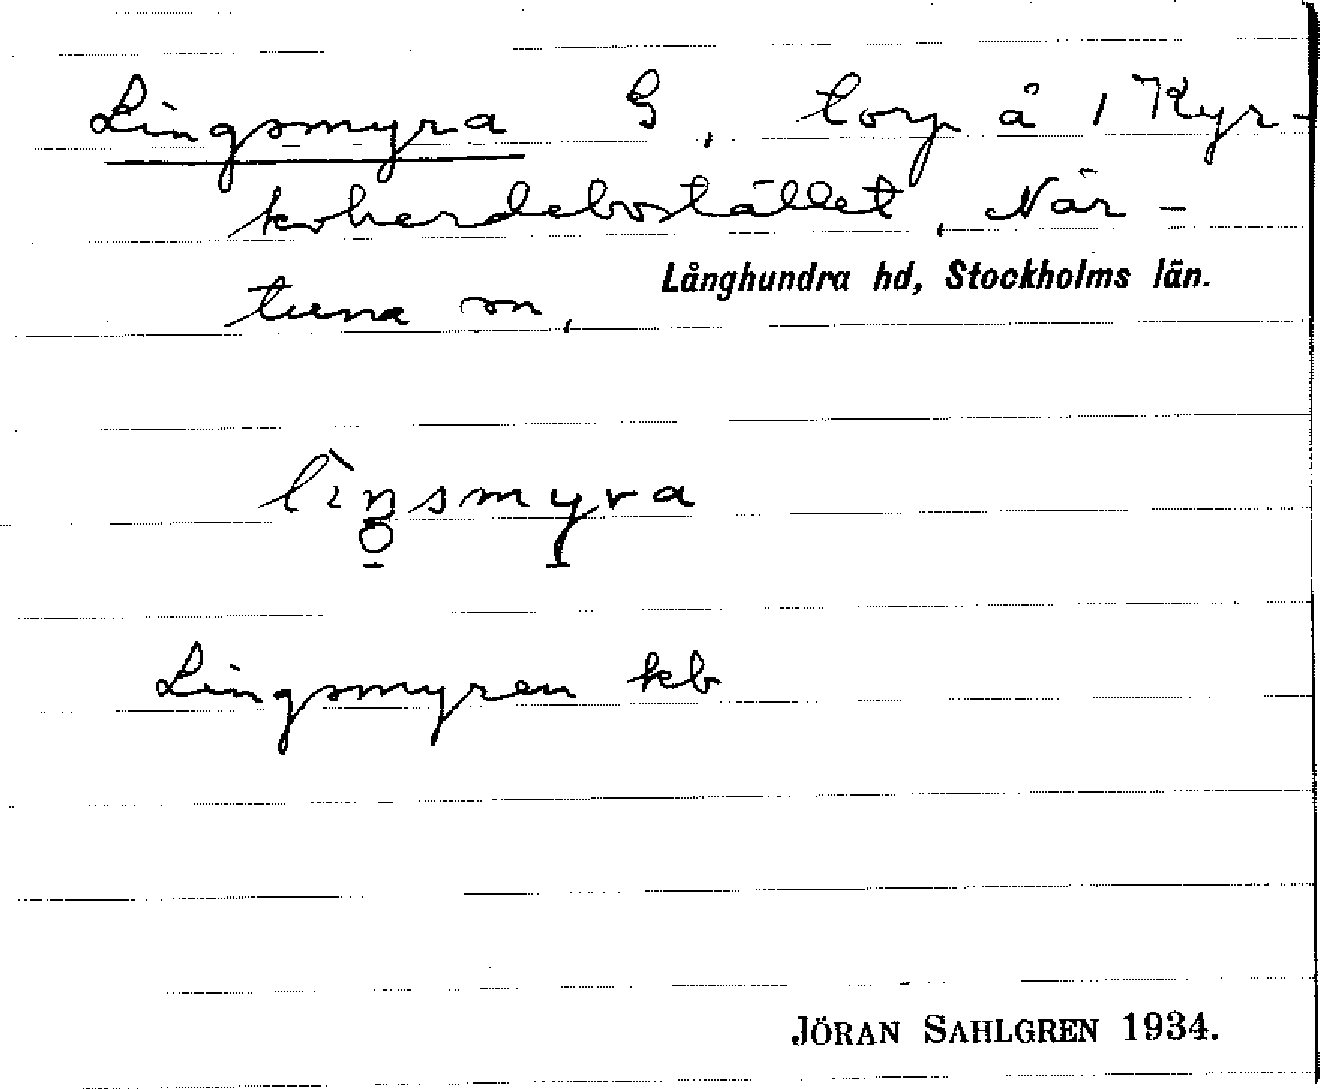 Lingsmyra G, torp å 1 Kyr-
koherdebostället, När-
tuna sn,
Långhundra hd, Stockholms län.
lìŋsmyra
Lingsmyren kb
JÖRAN SAHLGREN 1934.